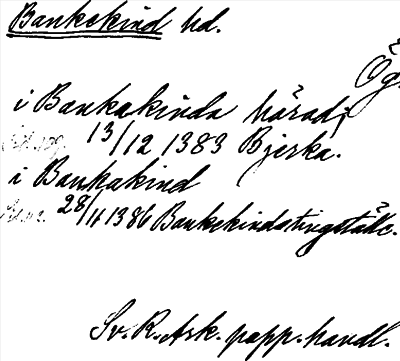 Bankekind hd.
Ög.
i Bankakinda häradi
13/12 1383 Bjerka.
i Bankakind
28/11 1386 Bankekindstingställe.
Sv. R. Ark. papp. handl.